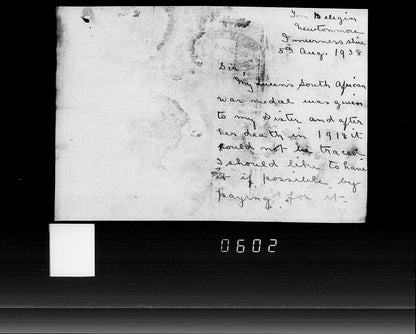 Newtonmore
Inverness shire
5th Aug. 1938
Sir,
My Queen's South African
war medal was given
to my Sister and after
her death in 1918 it
could not be traced
I should like to have
it if possible by
paying for it.
0602